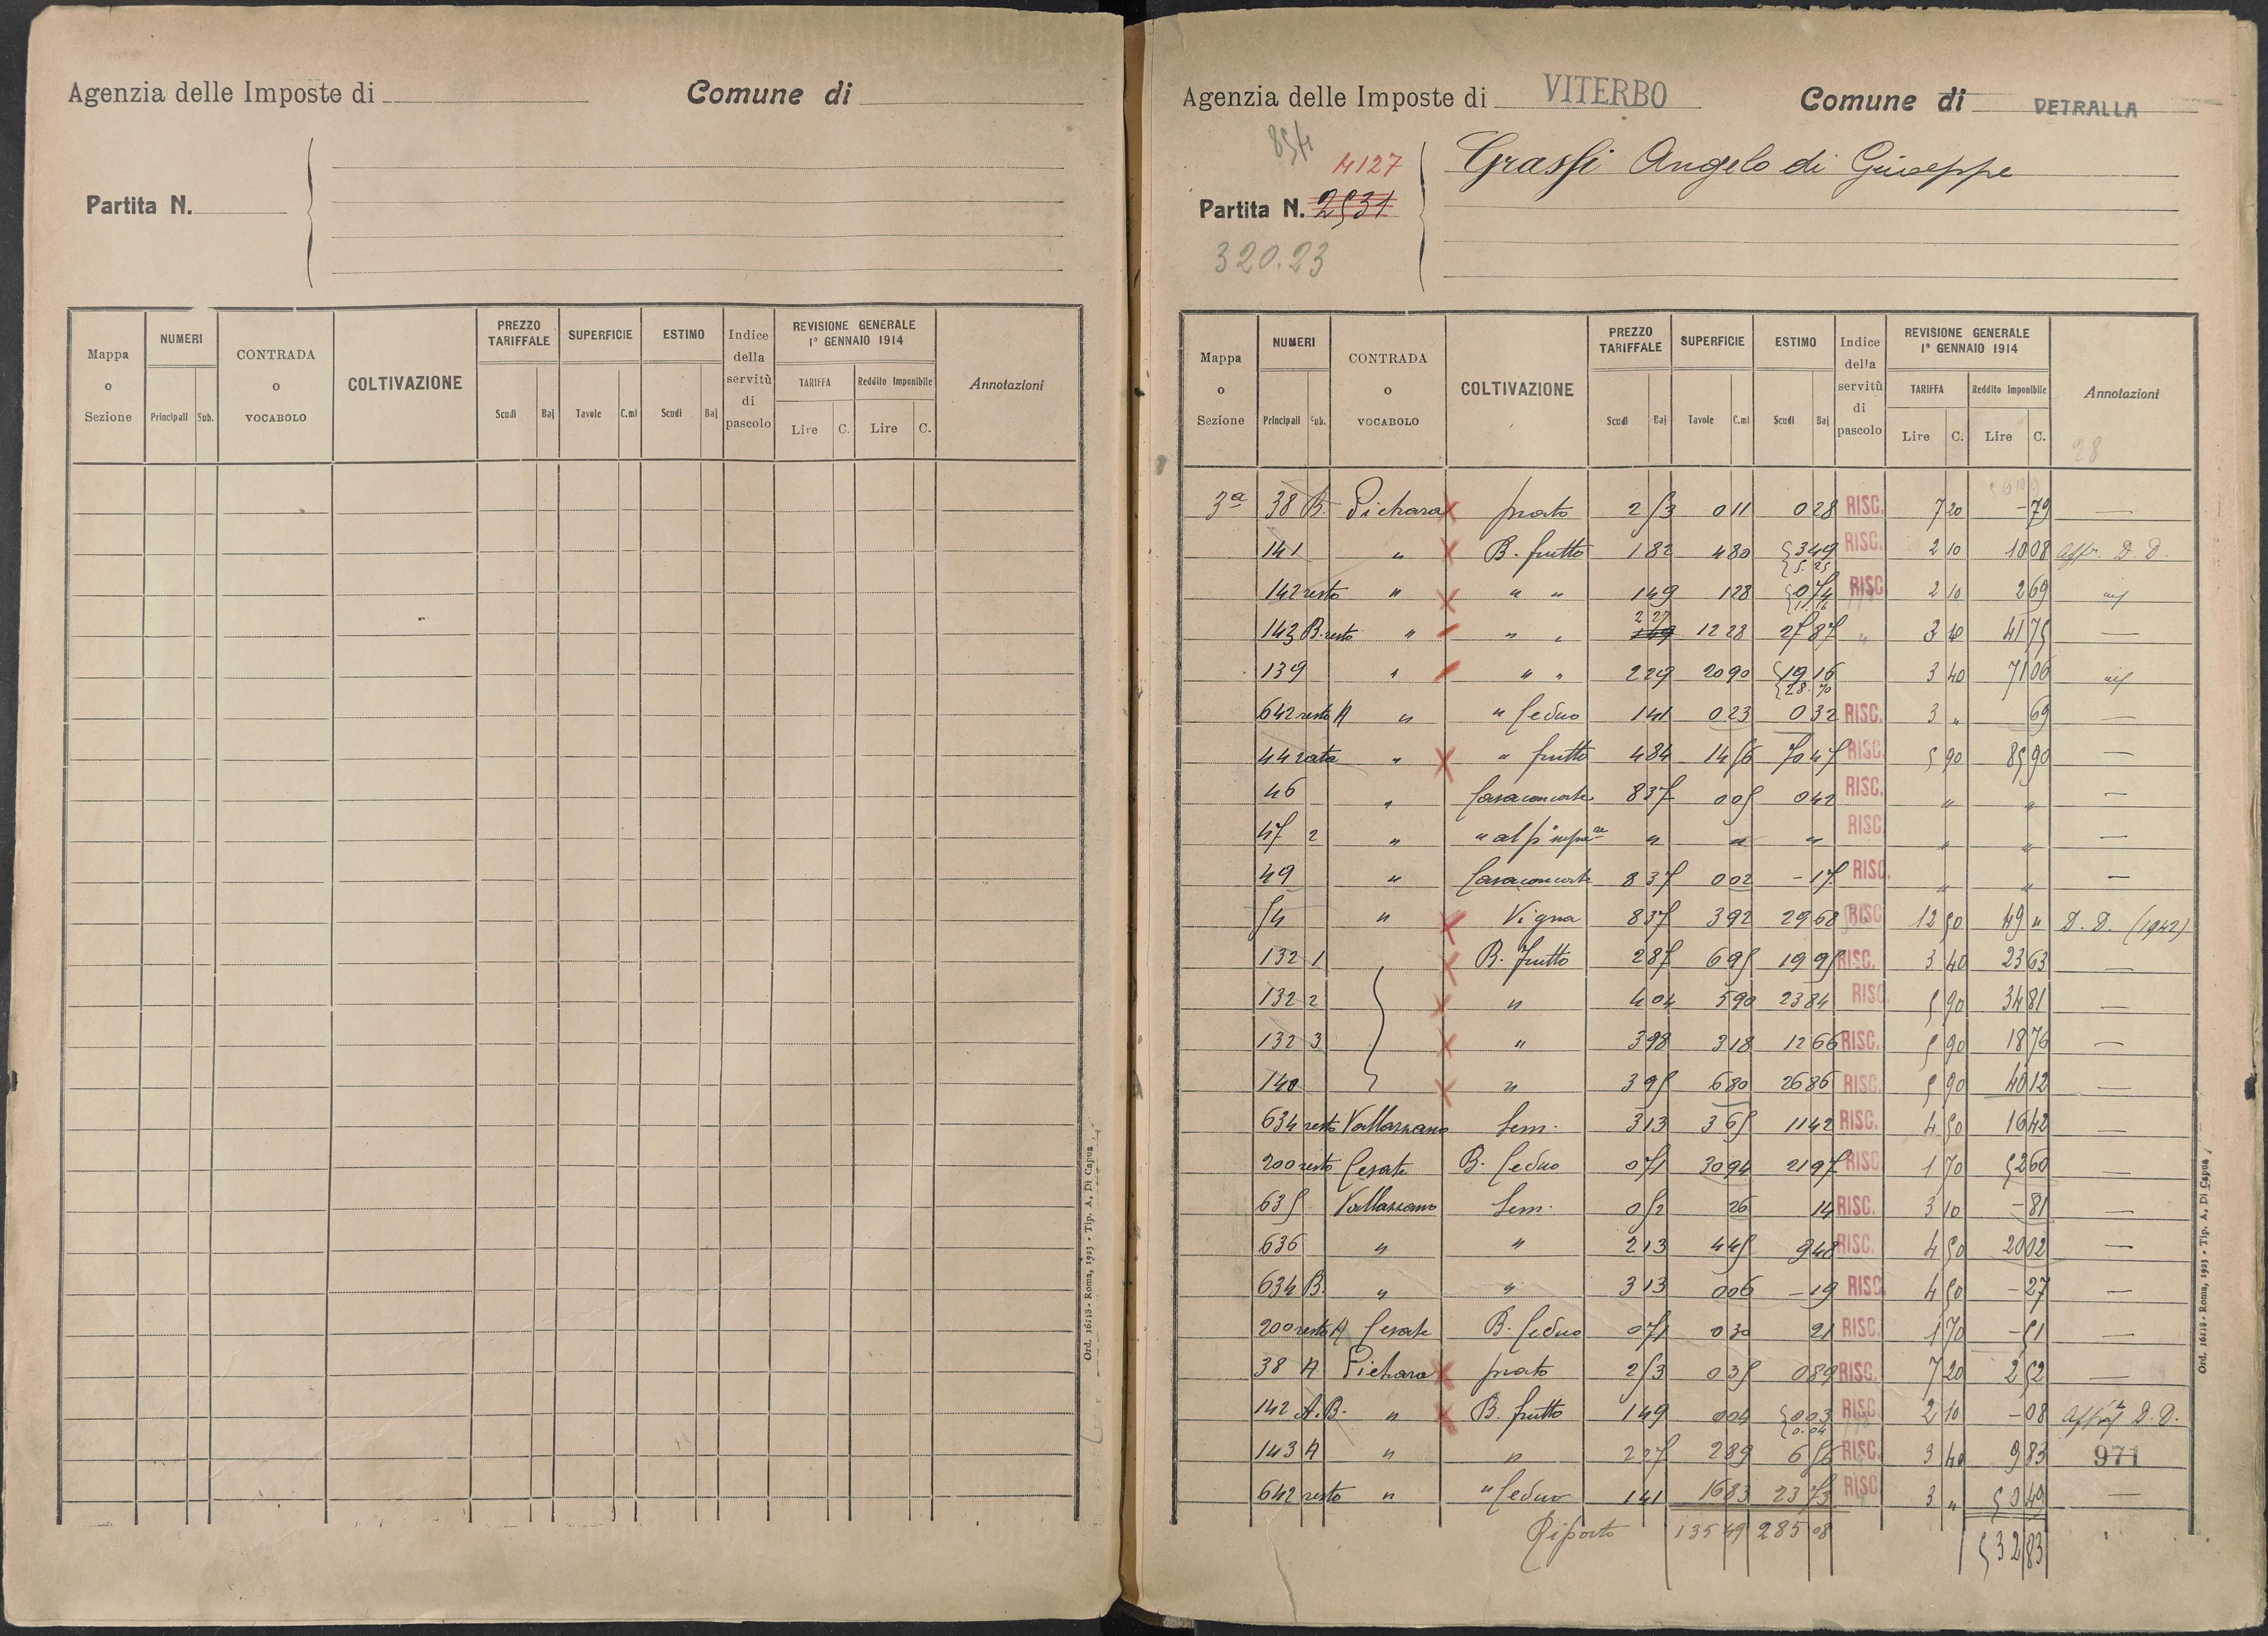 Agenzia delle Imposte di Comune di
Partita N.
Mappa o Sezione NUMERI Principali Sub. CONTRADA o VOCABOLO COLTIVAZIONE PREZZO TARIFFALE Scudi Baj SUPERFICIE Tavole C.mi ESTIMO Scudi Baj Indice della servitù di pascolo REVISIONE GENERALE 1° GENNAIO 1914 TARIFFA Lire C. Reddito Imponibile Lire C. Annotazioni
Ord. 16118 - Roma, 1923 - Tip. A. Di Capua
Agenzia delle Imposte di VITERBO Comune di VETRALLA
854
4127
Grassi Angelo di Giuseppe
Partita N. 2531
320.23
Mappa o Sezione NUMERI Principali Sub. CONTRADA o VOCABOLO COLTIVAZIONE PREZZO TARIFFALE Scudi Baj SUPERFICIE Tavole C.mi ESTIMO Scudi Baj Indice della servitù di pascolo REVISIONE GENERALE 1° GENNAIO 1914 TARIFFA Lire C. Reddito Imponibile Lire C. Annotazioni
28
3a 38 B Pichara x prato 2 53 0 11 0 28 RISC. 7 20 - 79 —
141 " x B. frutto 1 82 4 80 3 49 5.25 RISC. 2 10 10 08 Aff. D. D.
142 resto " x " " 1 49 1 28 0 74 RISC 2 10 2 69
143 B. resto " " " 2 27 169 12 28 27 87 " 3 40 41 75 —
139 " " " 2 29 20 90 19 16 28.70 3 40 71 06
642 resto A " " Ceduo 1 41 0 23 0 32 RISC. 3 " 69 —
44 rata " x " frutto 4 84 14 56 70 47 RISC. 5 90 85 90 —
46 " Casa con corte 8 37 0 05 0 42 RISC. " " —
47 2 " " al p° " " " RISC " " —
49 " Casa con corte 8 37 0 02 - 17 RISC. " " —
54 " x Vigna 8 37 3 92 29 68 RISC 12 50 49 " D. D. (1942)
132 1 x B. frutto 2 87 6 95 19 95 RISC. 3 40 23 63 —
132 2 x " 4 04 5 90 23 84 RISC. 5 90 34 81 —
132 3 x " 3 98 3 18 12 66 RISC. 5 90 18 76 —
140 x " 3 95 6 80 26 86 RISC. 5 90 40 12 —
634 resto Vallarsano Sem. 3 13 3 65 11 42 RISC. 4 50 16 42 —
200 resto Cesate B. Ceduo 0 71 30 94 21 97 RISC 1 70 52 60 —
635 Vallarsano Sem. 0 52 26 14 RISC. 3 10 - 81 —
636 " " 2 13 4 45 9 48 RISC. 4 50 20 02 —
634 B. " " 3 13 0 06 - 19 RISC 4 50 - 27 —
200 resto A Cesate B. Ceduo 0 71 0 30 21 RISC. 1 70 - 51 —
38 A Pichara x prato 2 53 0 35 0 89 RISC. 7 20 2 52 —
142 A.B. " x B. frutto 1 49 0 04 0 03 0.04 RISC. 2 10 - 08 D. D.
143 A " " 2 27 2 89 6 56 RISC. 3 40 9 83 971
642 resto " " Ceduo 1 41 16 83 23 73 RISC 3 " 50 49 —
Riporto 135 49 285 08 532 83
Ord. 16118 - Roma, 1923 - Tip. A. Di Capua